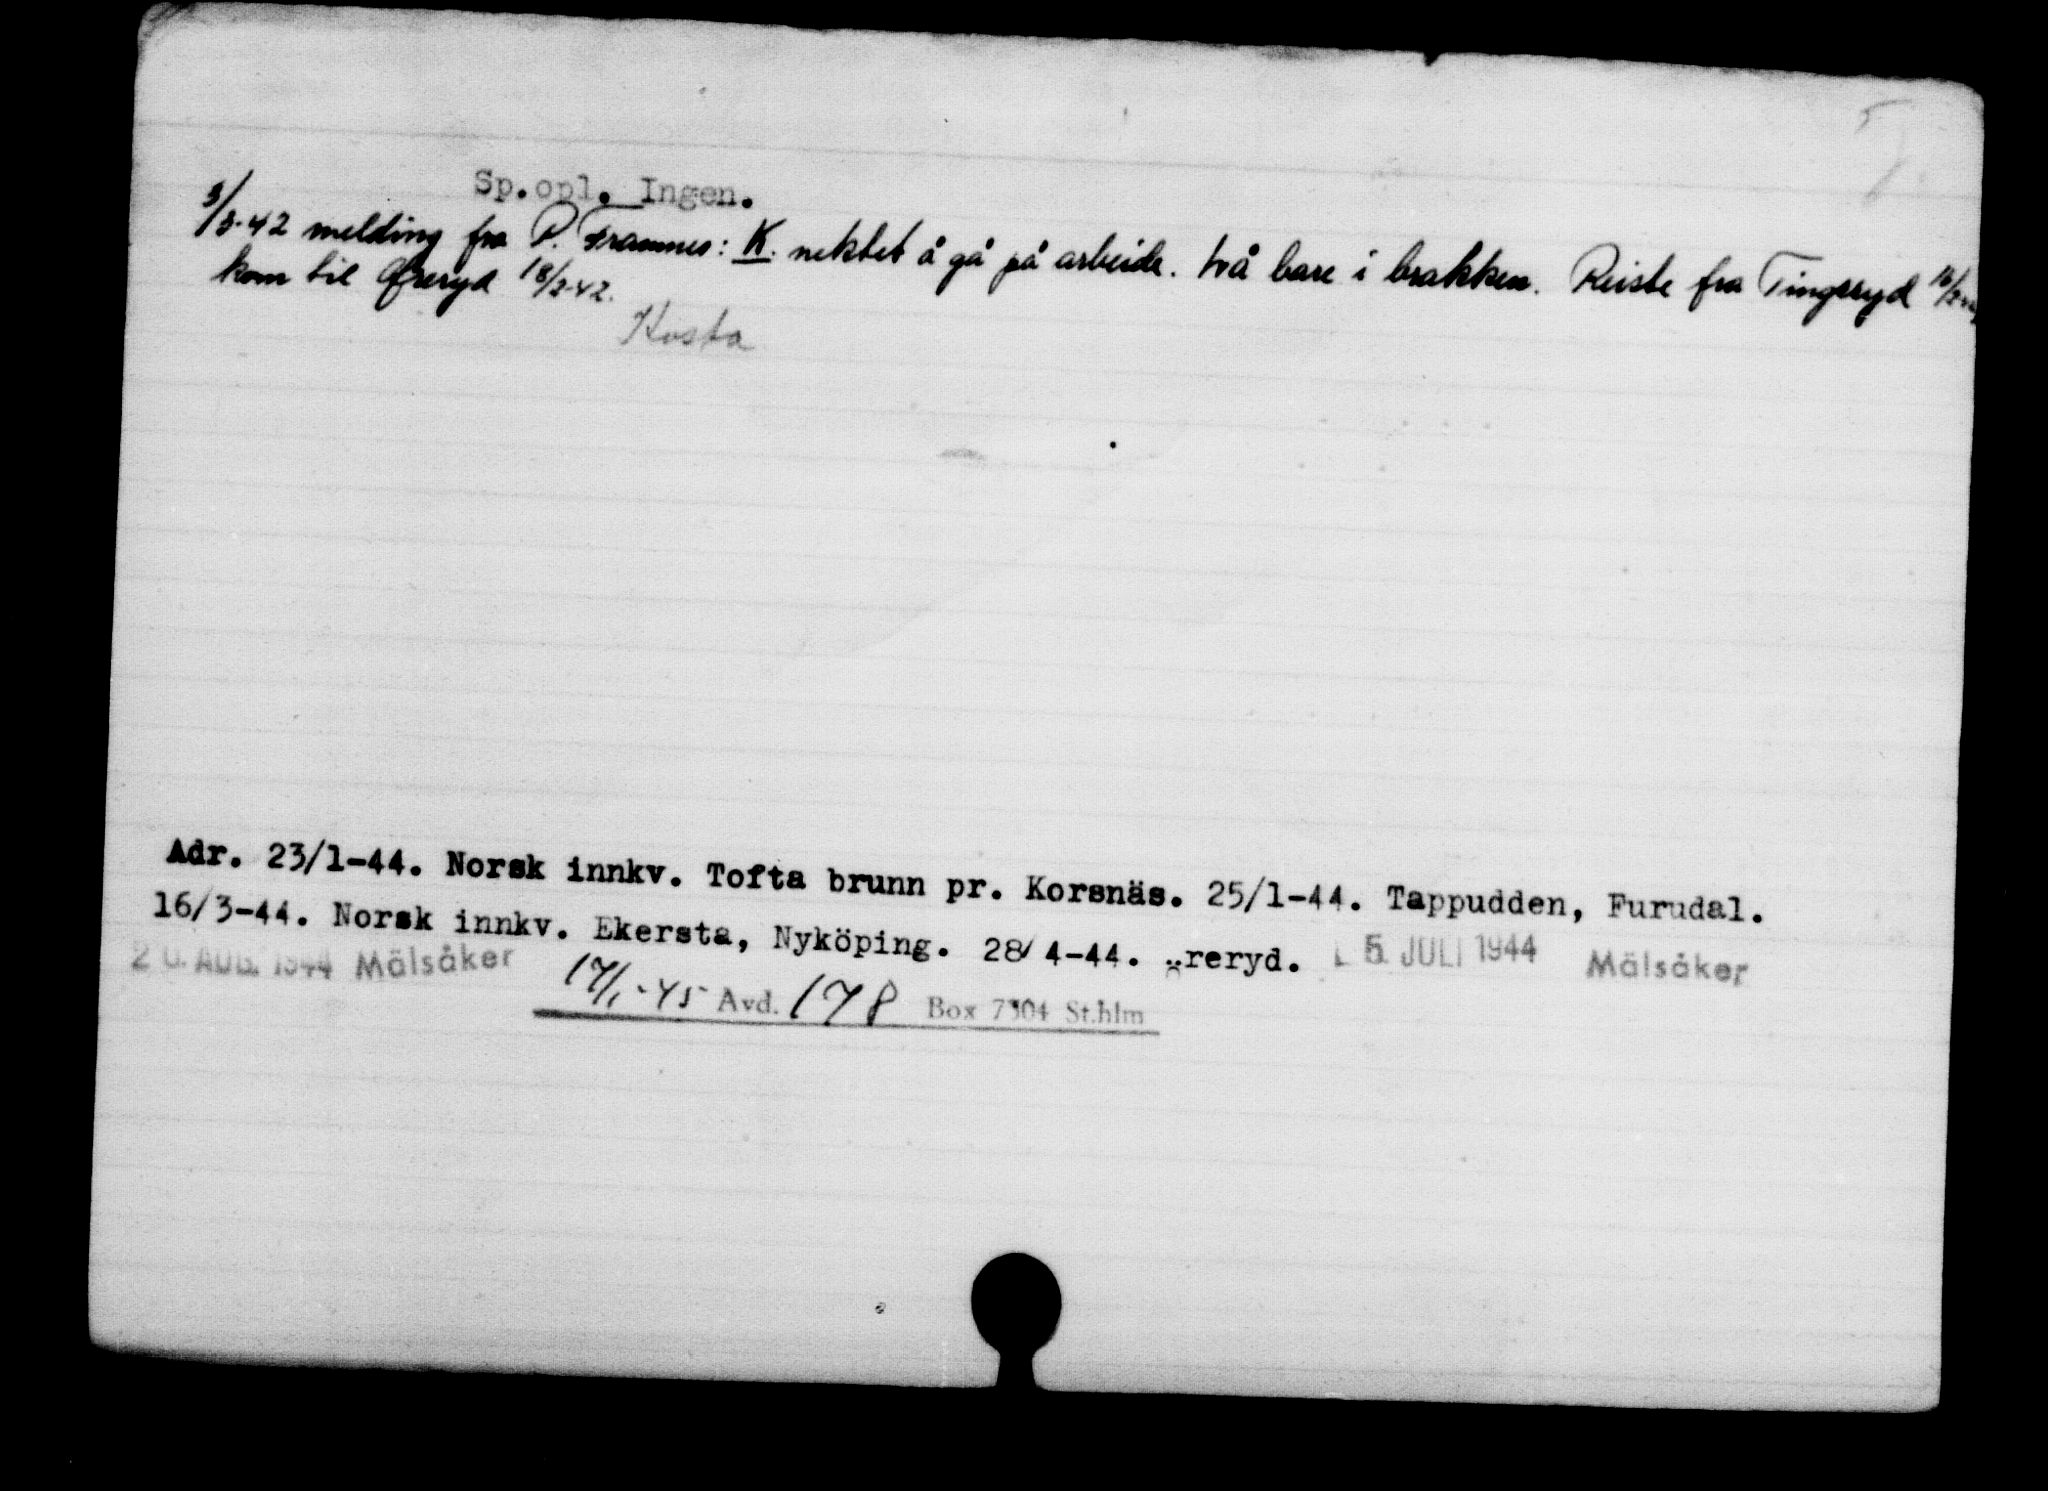 Sp.opl. Ingen.
3/3-42 melding fra P. Framnes: K. nektet å gå på arbeide. lå bare i brakken. Reiste fra Tingsryd
kom til Øreryd 18/2-42.
Kosta
Adr. 23/1-44. Norsk innkv. Tofta brunn pr. Korsnäs. 25/1-44. Tappudden, Furudal.
16/3-44. Norsk innkv. Ekersta, Nyköping. 28/4-44. Öreryd. 5. JULI 1944 Mälsåker
20. AUG. 1944 Mälsåker
17/1-45 Avd. 178 Box 7304 St.hlm